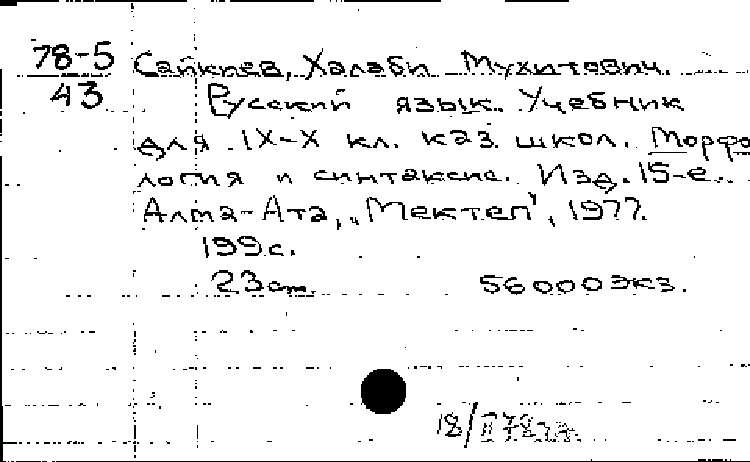 78-5 Сайкиев, Халаби Мухитович.
43 Русский язык. Учебник
для IX-X кл. каз. школ. Морфо
логия и синтаксис. Изд. 15-е.
Алма-Ата, „Мектеп", 1977.
199 с.
23 см. 56000 экз.
18/II 78